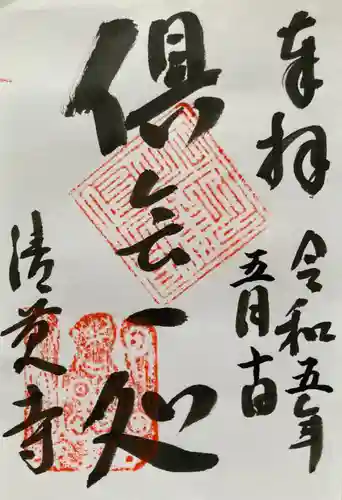 奉拝
令和五年
五月十四日
倶会一処
清覚寺